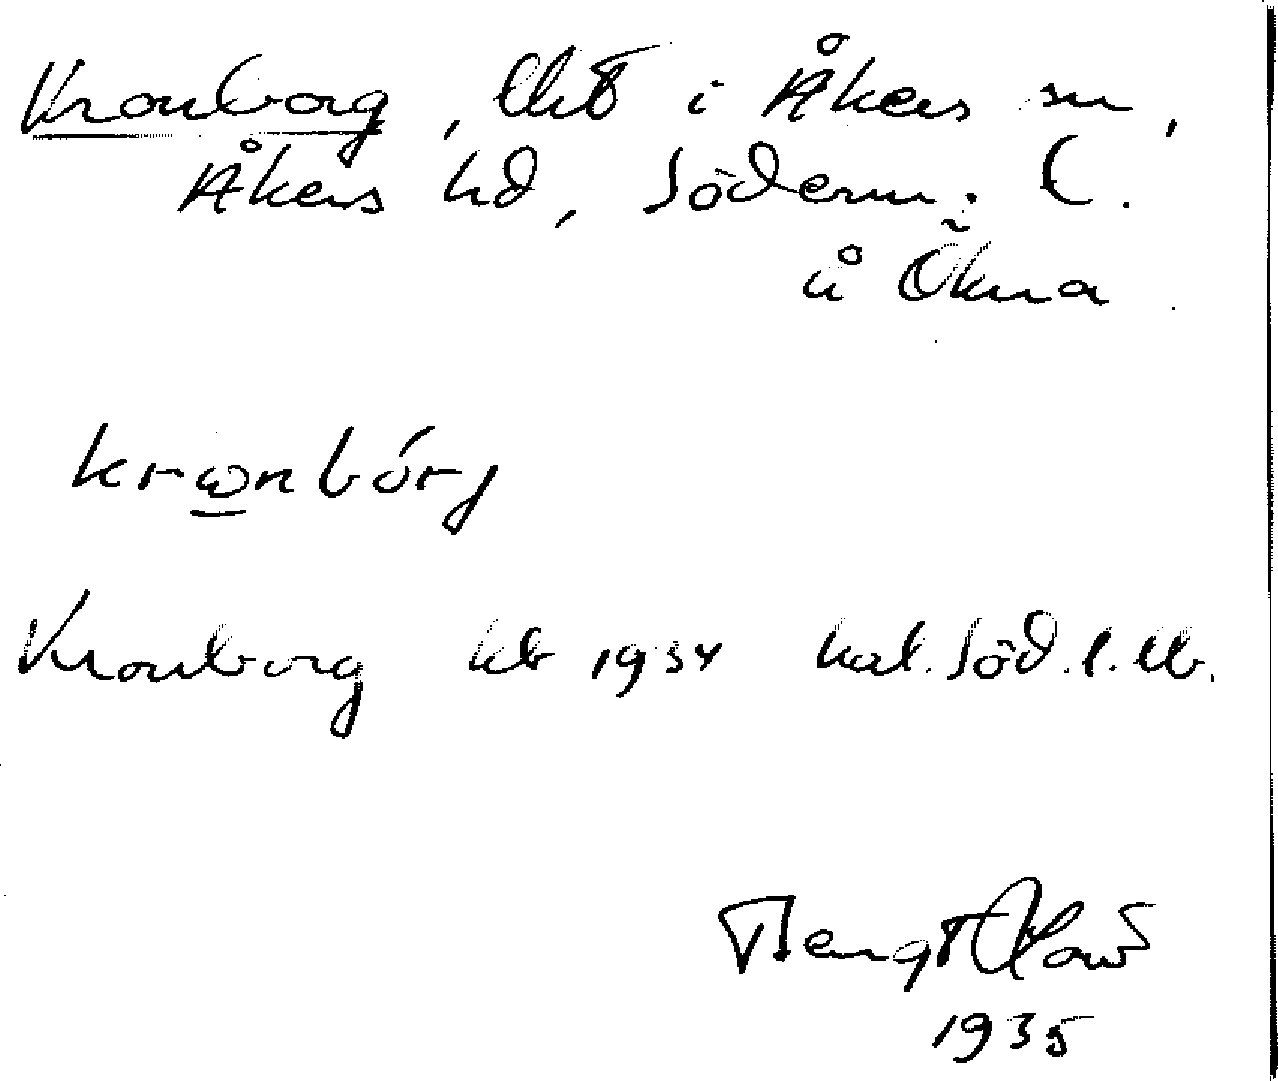 Kronborg, lht i Åkers sn,
Åkers hd, Söderm. l.
å Ökna
krωnbórj
Kronborg kb 1934 hal. Söd. l.
Bengt
1935